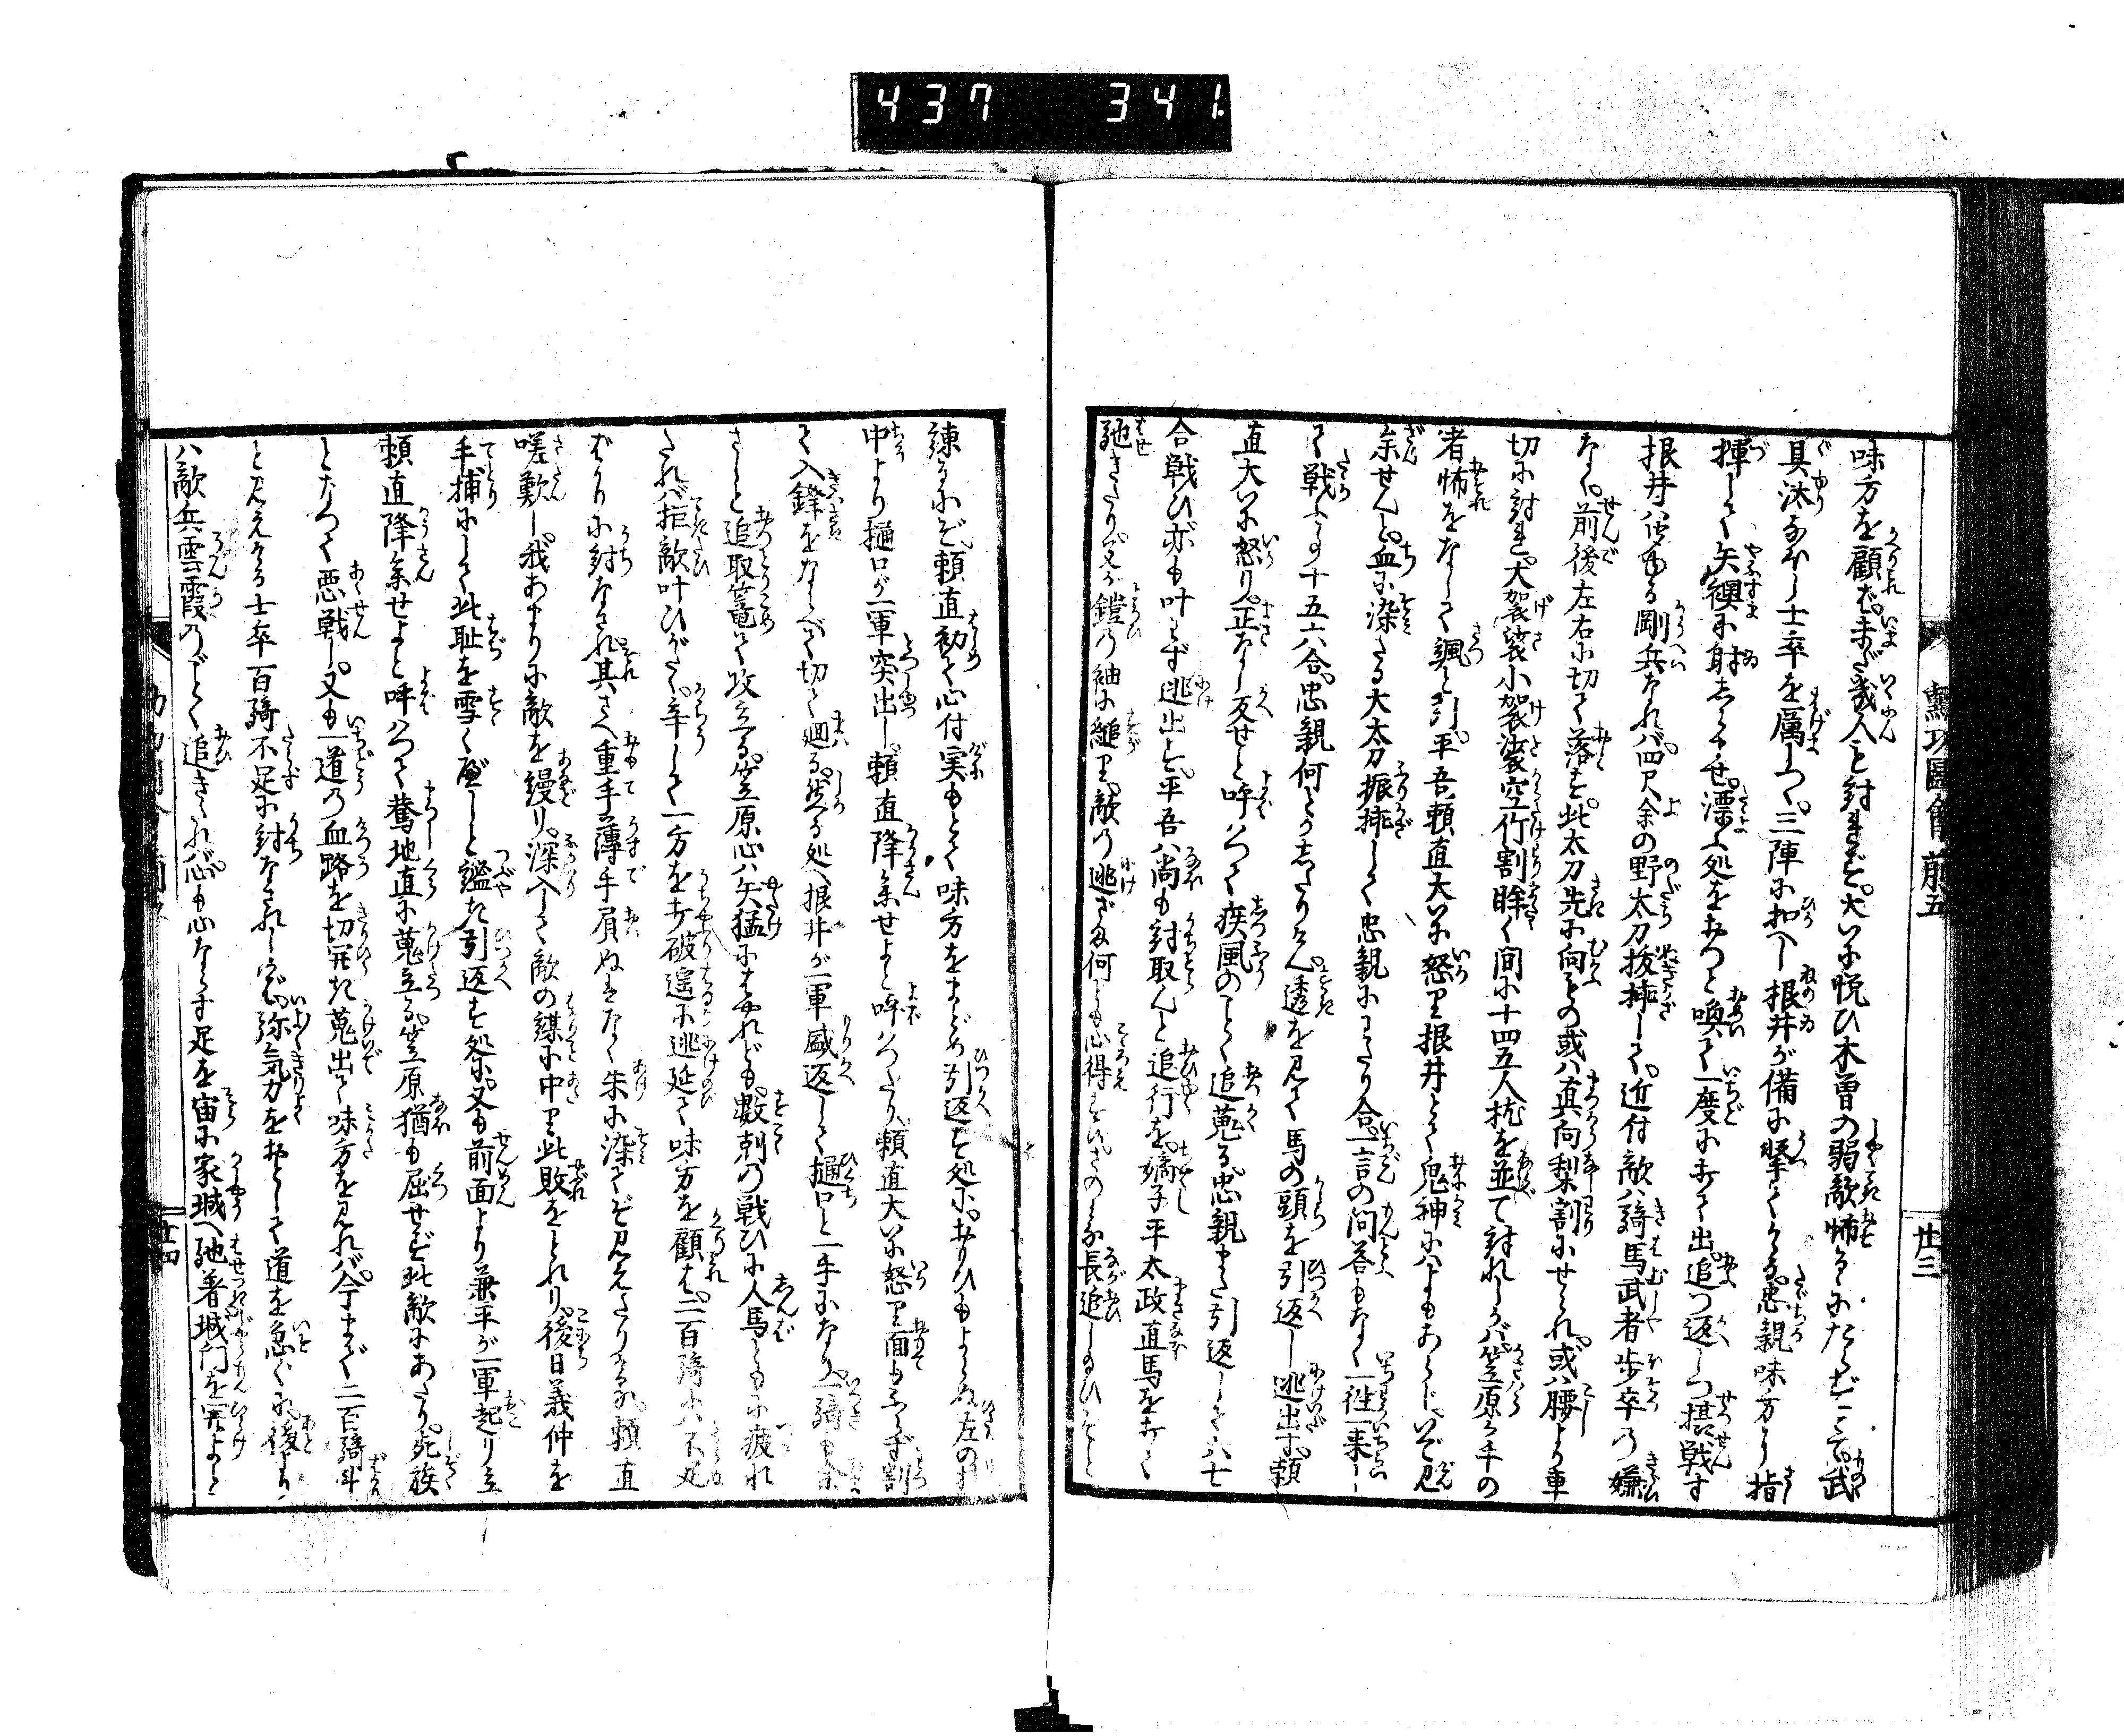 437 341.
勲功圖會前五
廿三
味方を顧れば未だ幾人も討れず大いに悦ひ木曽の弱敵怖るゝにたらず
具沐 士卒を属しつゝ三陣に扣へし根井が備に撃てかゝる忠親味方に指
揮して矢襖に射 せ漂ふ処を と喚て一度に打て出追つ返しつ攪戦す
根井 剛兵なれバ四尺余の野太刀抜挿して近付敵ハ騎馬武者歩卒の嫌
なく前後左右に切て落す此太刀先に向もの或ハ真向梨割にせられ或ハ腰より車
切に討れ大袈裟小袈裟空竹割眸く間に十四五人枕を並て討れしかバ笠原が手の
者怖をなして颯と引平吾頼直大いに怒り根井とて鬼神にハよもあらじいで見
参せんと血に染たる大太刀振挿して忠親にわたり合一言の問答もなく一往一来し
て戦ふもの十五六合忠親何とか したりけん透を見て馬の頭を引返し逃出す頼
直大いに怒り正なし反せと呼ハつて疾風のごとく追蒐る忠親また引返して六七
合戦ひ亦も叶ハず逃出す平吾ハ尚も討取んと追行を嫡子平太政直馬を打て
馳きたり父が鎧の袖に縋り敵の逃ざま何とも心得ず 長追しるひそと
諫るにぞ頼直初て心付実もとて味方をまどめ引返す処におもひもよらぬ左の方
中より樋口が一軍突出し頼直降参せよと呼ハつたり頼直大いに怒り面もふらず割
て入鋒をならべて切て廻る然る処へ根井が一軍盛返して樋口と一手になり一騎も余
さじと追取篭て攻立る笠原心ハ矢猛にはやれども数刻の戦ひに人馬ともに疲れ
たれバ拒敵叶ひがたく辛して一方を打破遥に逃延て味方を顧れバ二百騎にハ不足
ばかりに討なされ其さへ重手薄手肩ぬもなく朱に染てぞ見えたりける頼直
嗟歎し我あまりに敵を縵り深入して敵の謀に中り此敗をとれり後日義仲を
手捕にして此恥を雪くべしと 引返す処に又も前面より兼平が一軍起り立
頼直降参せよと呼ハつて驀地直に蒐立る笠原猶も屈せず此敵にあたり死族
となつて悪戦し又も一道の血路を切開き蒐出て味方を見れバ今まで二百騎斗
と見えける士卒一百騎不足に討なされしかバ弥気力をおとして道を急ぐに後より
ハ敵兵雲霞のごとく追きたれバ心も心ならず足を宙に家城へ馳着城門を開よと
廿四